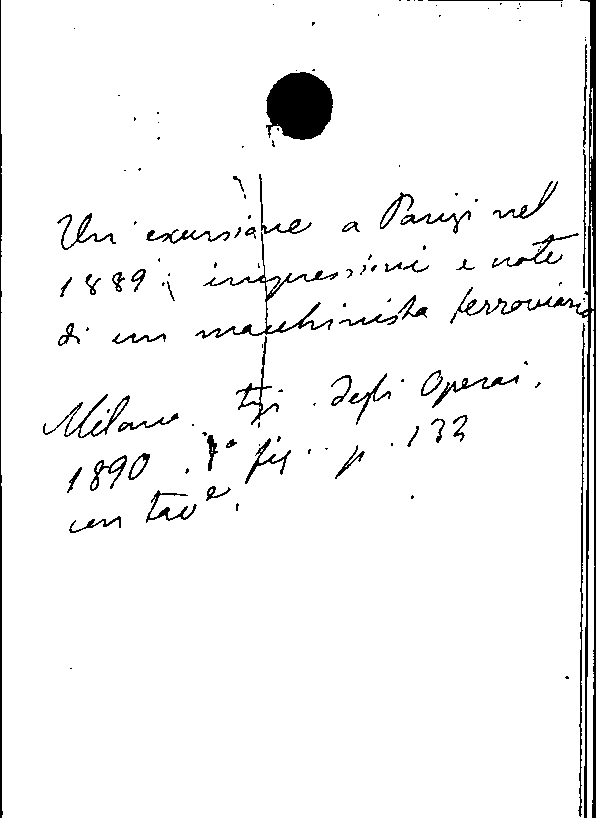 Un' excursione a Parigi nel
1889: impressioni e note
di un macchinista ferroviario
Milano. tip. degli Operai.
1890. 8° fig. p. 132
con tav.e